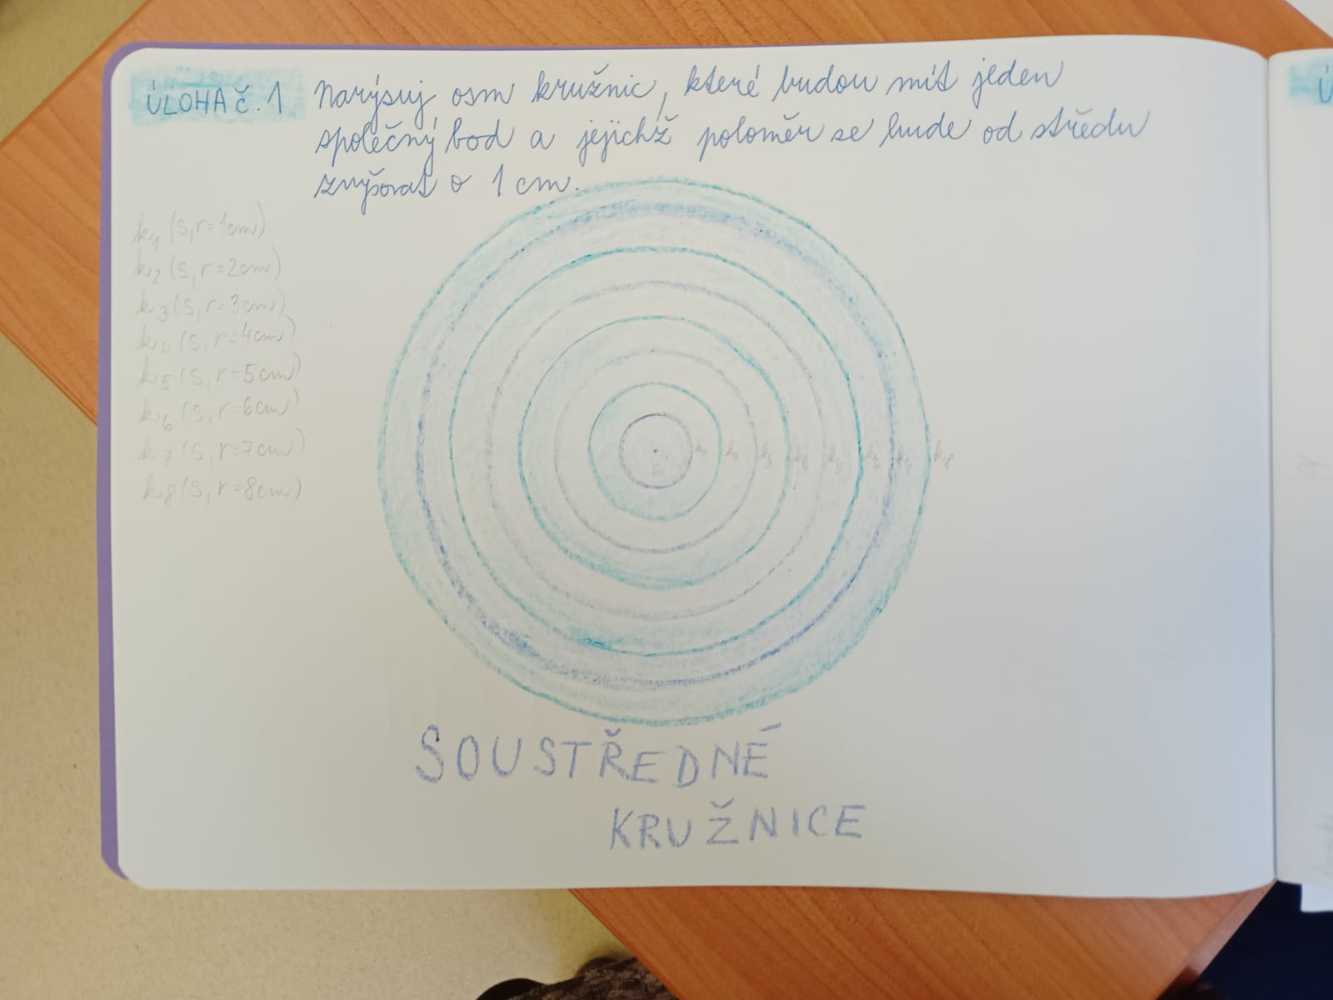 ÚLOHA č. 1 Narýsuj osm kružnic, které budou mít jeden
společný bod a jejichž poloměr se bude od středu
zvyšovat o 1 cm.
k₁ (S, r=1cm)
k₂ (S, r=2cm)
k₃ (S, r=3cm)
k₄ (S, r=4cm)
k₅ (S, r=5cm)
k₆ (S, r=6cm)
k₇ (S, r=7cm)
k₈ (S, r=8cm)
SOUSTŘEDNÉ
KRUŽNICE